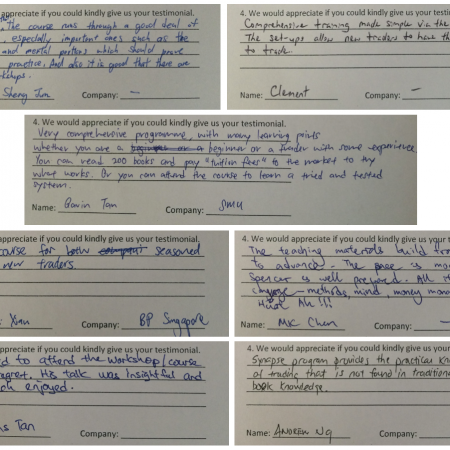 appreciate if you could kindly give us your testimonial.
The course runs through a good deal of
, especially important ones such as the
and mental portions which should prove
practice. And also it is good that there are
kshops.
Sheng Jun Company: —
4. We would appreciate if you could kindly give us your
Comprehensive training made simple via the
The set-ups allow new traders to have th
to trade.
Name: Clement Company: —
4. We would appreciate if you could kindly give us your testimonial.
Very comprehensive programme, with many learning points
whether you are a beginner or a trader with some experience.
You can read 200 books and pay "tuition fees" to the market to try
what works. Or you can attend the course to learn a tried and tested
system.
Name: Gavin Tan Company: SMU
appreciate if you could kindly give us your testimonial.
ourse for both seasoned
new traders.
Xiau Company: BP Singapore
4. We would appreciate if you could kindly give us your t
The teaching materials build fro
to advanced. The pace is mod
Spencer is well prepared. All
methods, mind, money
Huat Ah !!!
Name: MK Chen Company: —
appreciate if you could kindly give us your testimonial.
d to attend the workshop/course
regret. His talk was insightful and
ch enjoyed.
s Tan Company:
4. We would appreciate if you could kindly give us your te
Synapse program provides the practical kn
of trading that is not found in tradition
book knowledge.
Name: Andrew Ng Company: